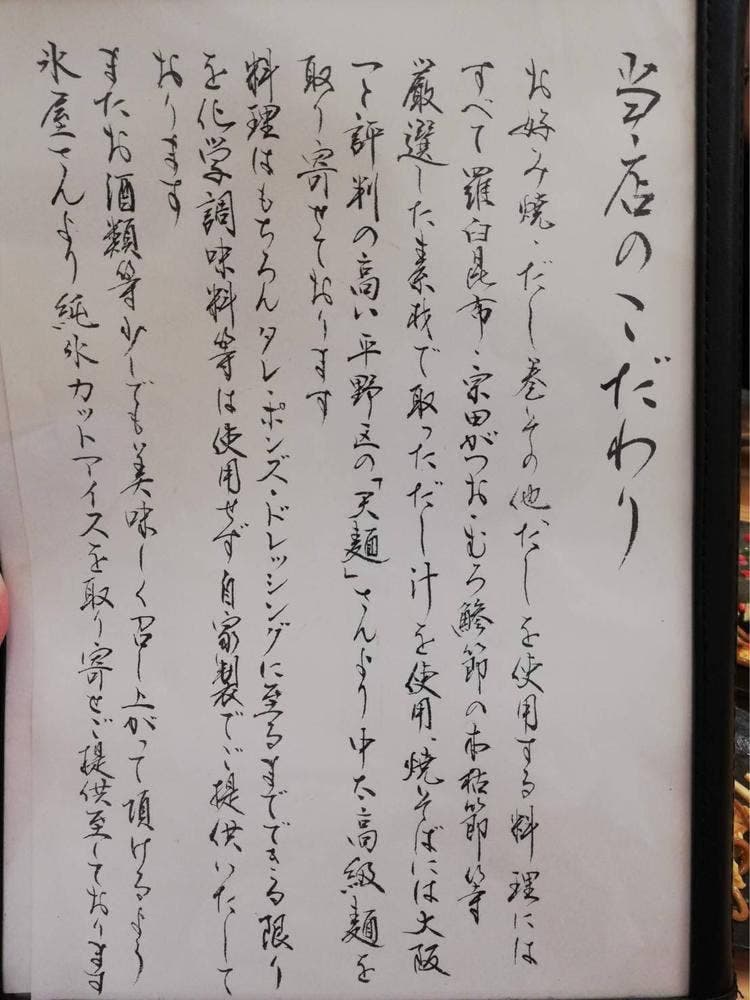 当店のこだわり
お好み焼・だし巻・その他、だしを使用する料理には
すべて羅臼昆布・宗田がつお・むろ鯵節の本枯節等
厳選した素材で取っただし汁を使用、焼そばには大阪
一と評判の高い平野区の「天麺」さんより中太高級麺を
取り寄せております
料理はもちろんタレ・ポンズ・ドレッシングに至るまでできる限り
を化学調味料等は使用せず自家製でご提供いたして
おります
またお酒類等少しでも美味しく召し上がって頂けるよう
氷屋さんより純氷カットアイスを取り寄せご提供至しております